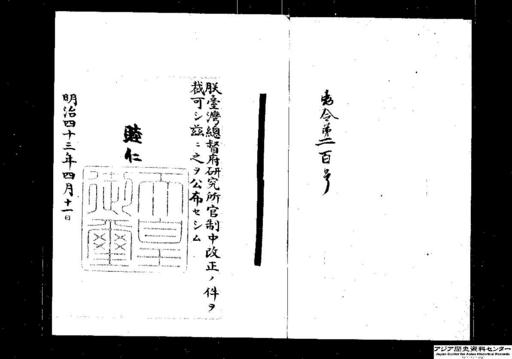 勅令第二百号
朕臺灣總督府研究所官制中改正ノ件ヲ
裁可シ茲ニ之ヲ公布セシム
睦仁
天皇
御璽
明治四十三年四月十一日
アジア歴史資料センター
Japan Center for Asian Historical Records